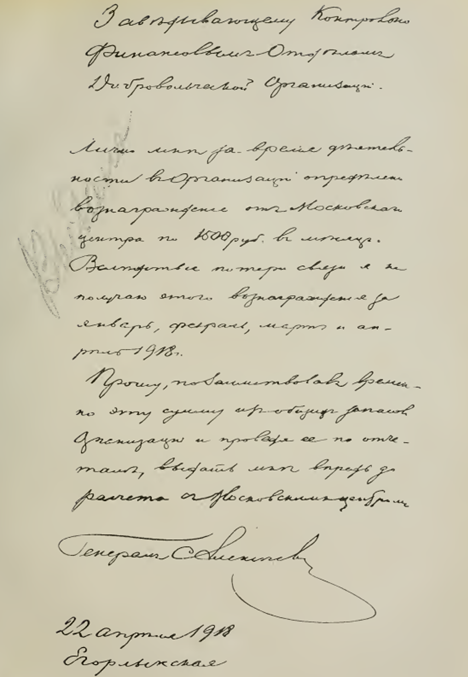 Завѣдывающему Контрольно
Финансовымъ Отдѣломъ
Добровольческой Организаціи.
Лично мнѣ за время дѣятель-
ности въ Организаціи опредѣлено
вознагражденіе отъ Московскаго
центра по 1000 руб. въ мѣсяцъ.
Вслѣдствіе потери связи я не
получаю этого вознагражденія за
январь, февраль, мартъ и ап-
рѣль 1918 г.
Прошу, позаимствовавъ времен-
но эту сумму изъ общихъ запасовъ
Организаціи и проведя ее по отче-
тамъ, выдать мнѣ впредь до
расчета съ Московскимъ центромъ
Генералъ Алексѣевъ
22 апрѣля 1918
Егорлыкская